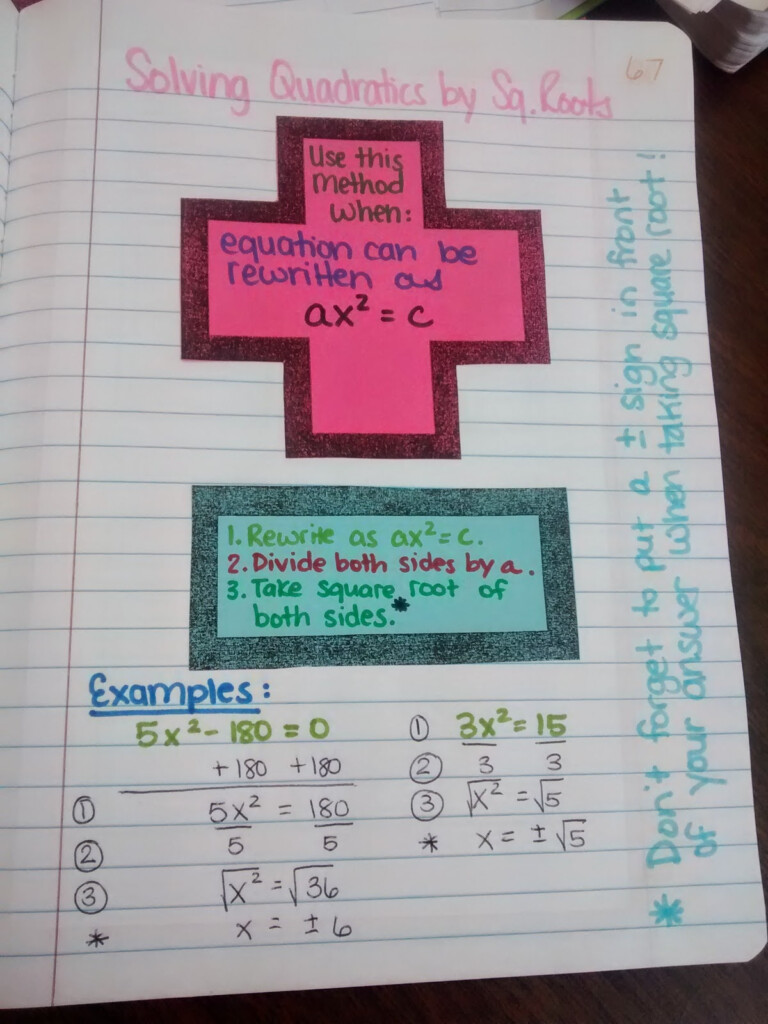 67
Solving Quadratics by Sq. Roots
Use this
method
when:
equation can be
rewritten as
ax² = c
1. Rewrite as ax² = c.
2. Divide both sides by a.
3. Take square root of
both sides.*
Examples:
5x² - 180 = 0
+180 +180
① 5x² = 180
② 5 5
③ √x² = √36
* x = ± 6
① 3x² = 15
② 3 3
③ √x² = √5
* x = ± √5
* Don't forget to put a ± sign in front
of your answer when taking square root!